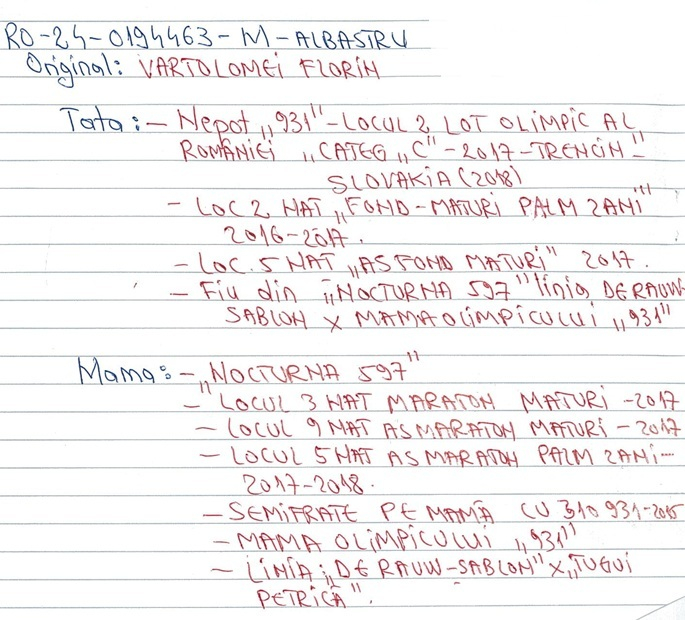 RO-24-0194463-M-ALBASTRU
Original: VARTOLOMEI FLORIN
Tata: - Nepot „931"-LOCUL 2 LOT OLIMPIC AL
ROMÂNIEI „CATEG „C"-2017-TRENCIN-"
SLOVAKIA (2018)
- LOC 2 NAT „FOND-MATURI PALM 2ANI"
2016-2017.
- LOC. 5 NAT „AS FOND MATURI" 2017.
- Fiu din „NOCTURNA 597" linia DERAUW-
SABLON X MAMA OLIMPICULUI „931"
Mama: - „NOCTURNA 597"
- "LOCUL 3 NAT MARATON MATURI -2017
- LOCUL 9 NAT AS MARATON MATURI - 2017
- LOCUL 5 NAT AS MARATON PALM 2ANI-
2017-2018.
- SEMIFRATE PE MAMĂ CU 310 931-2015
- MAMA OLIMPICULUI „931"
- LINIA: „DE RAUW-SABLON" X „TUGUI
PETRICĂ".